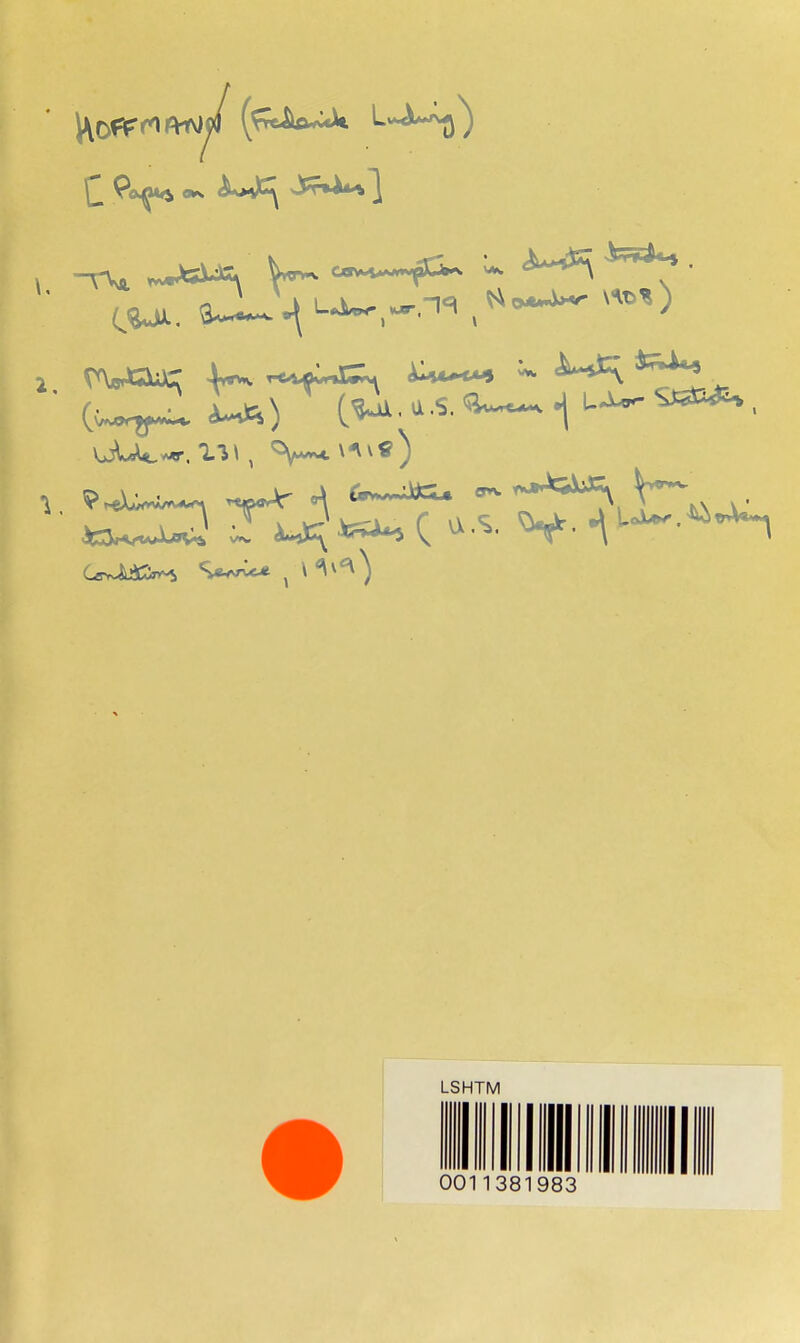 HOFFMAN (Frederick Ludwig)
[Papers on dusty trades]
1. The mortality from consumption in dusty trades.
(Bull. Bureau of Labor, no. 79, November 1908)
2. Mortality from respiratory diseases in dusty trades
(inorganic dusts) (Bull. U.S. Bureau of Labor Statistics,
whole no. 231, June 1918)
3. Preliminary report of Committee on mortality from
tuberculosis in dusty trades (U.S. Dept. of Labor. Working
Conditions Service, 1919)
LSHTM
0011381983